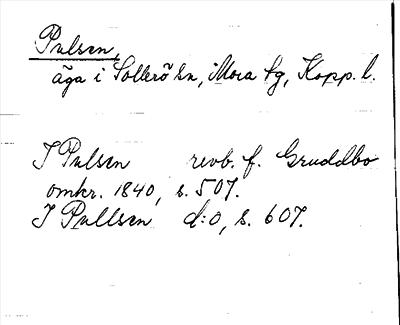 Pulsen,
äga i Sollerö sn, Mora fg, Kopp. l.
I Pulsen revb. f. Gruddbo
omkr. 1840, s. 507.
I Pullsen d:o, s. 607.